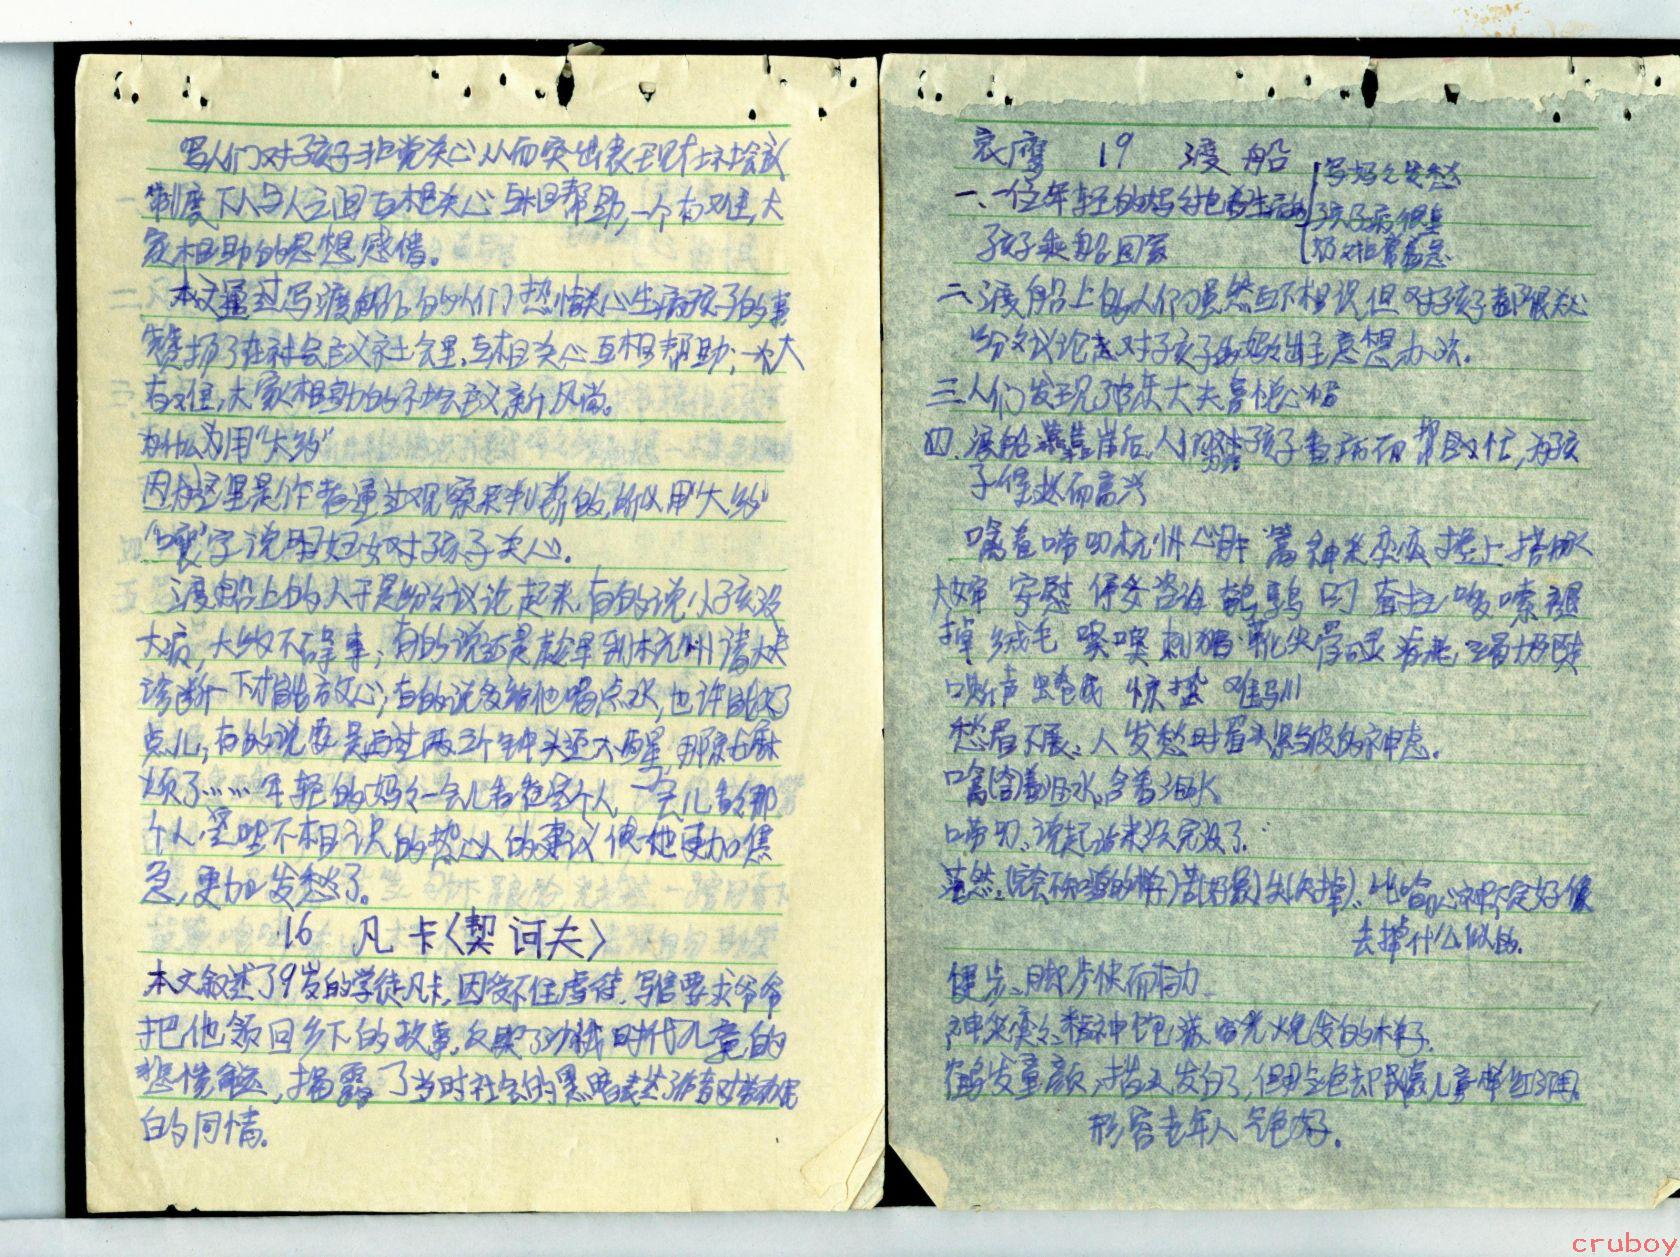 写人们对孩子非常关心从而突出表现在社会主义
制度下人与人之间互相关心互相帮助,一个有难,大
家相助的思想感情。
本文通过写渡船上的人们热情关心生病孩子的事
赞扬了在社会主义社会里,互相关心互相帮助;一人
有难,大家相助的社会主义新风尚。
为什么用“大约”
因为这里是作者通过观察来判断的,所以用“大约”
“嚷”字说明妇女对孩子关心。
渡船上的人于是纷纷议论起来,有的说小孩没
大病,大约不碍事;有的说还是趁早到杭州请大夫
诊断一下才能放心;有的说多给他喝点水,也许能好
点儿;有的说要是再过两三个钟头还不醒,那就麻
烦了……年轻的妈妈一会儿看看这个人,一会儿看看那
个人,这些不相识的热心人的建议使她更加焦
急,更加发愁了。
16 凡卡〈契诃夫〉
本文叙述了9岁的学徒凡卡,因受不住虐待,写信要求爷爷
把他领回乡下的故事,反映了沙俄时代儿童的
悲惨命运,揭露了当时社会的黑暗表达了作者对劳动人民
的同情。
19 渡船
一、一位年轻的妈妈抱着生病的
孩子乘船回家
写妈妈发愁
孩子病很重
妈妈非常着急
二、渡船上的人们虽然互不相识但对孩子都很关心
纷纷议论着对孩子的妈妈出主意想办法.
三.人们发现了陈大夫喜悦心情
四.渡船靠岸后,人们对孩子查病而帮助忙,为孩
子得救而高兴
愁眉不展:人发愁时眉头紧皱的神态。
噙(含)着泪水,含着泪水
唠叨:说起话来没完没了.
去掉什么似的.
健步:脚步快而有力
神采奕奕:精神饱满容光焕发的样子.
鹤发童颜:指头发白了,但脸色却跟儿童一样红润.
形容老年人气色好.
cruboy